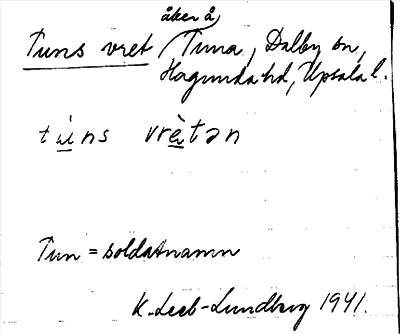 åker å
Tuns vret Tuna, Dalby sn,
Hagunda hd, Upsala l.
tuns vrètən
Tun = soldatnamn
K. Leeb-Lundberg 1941.